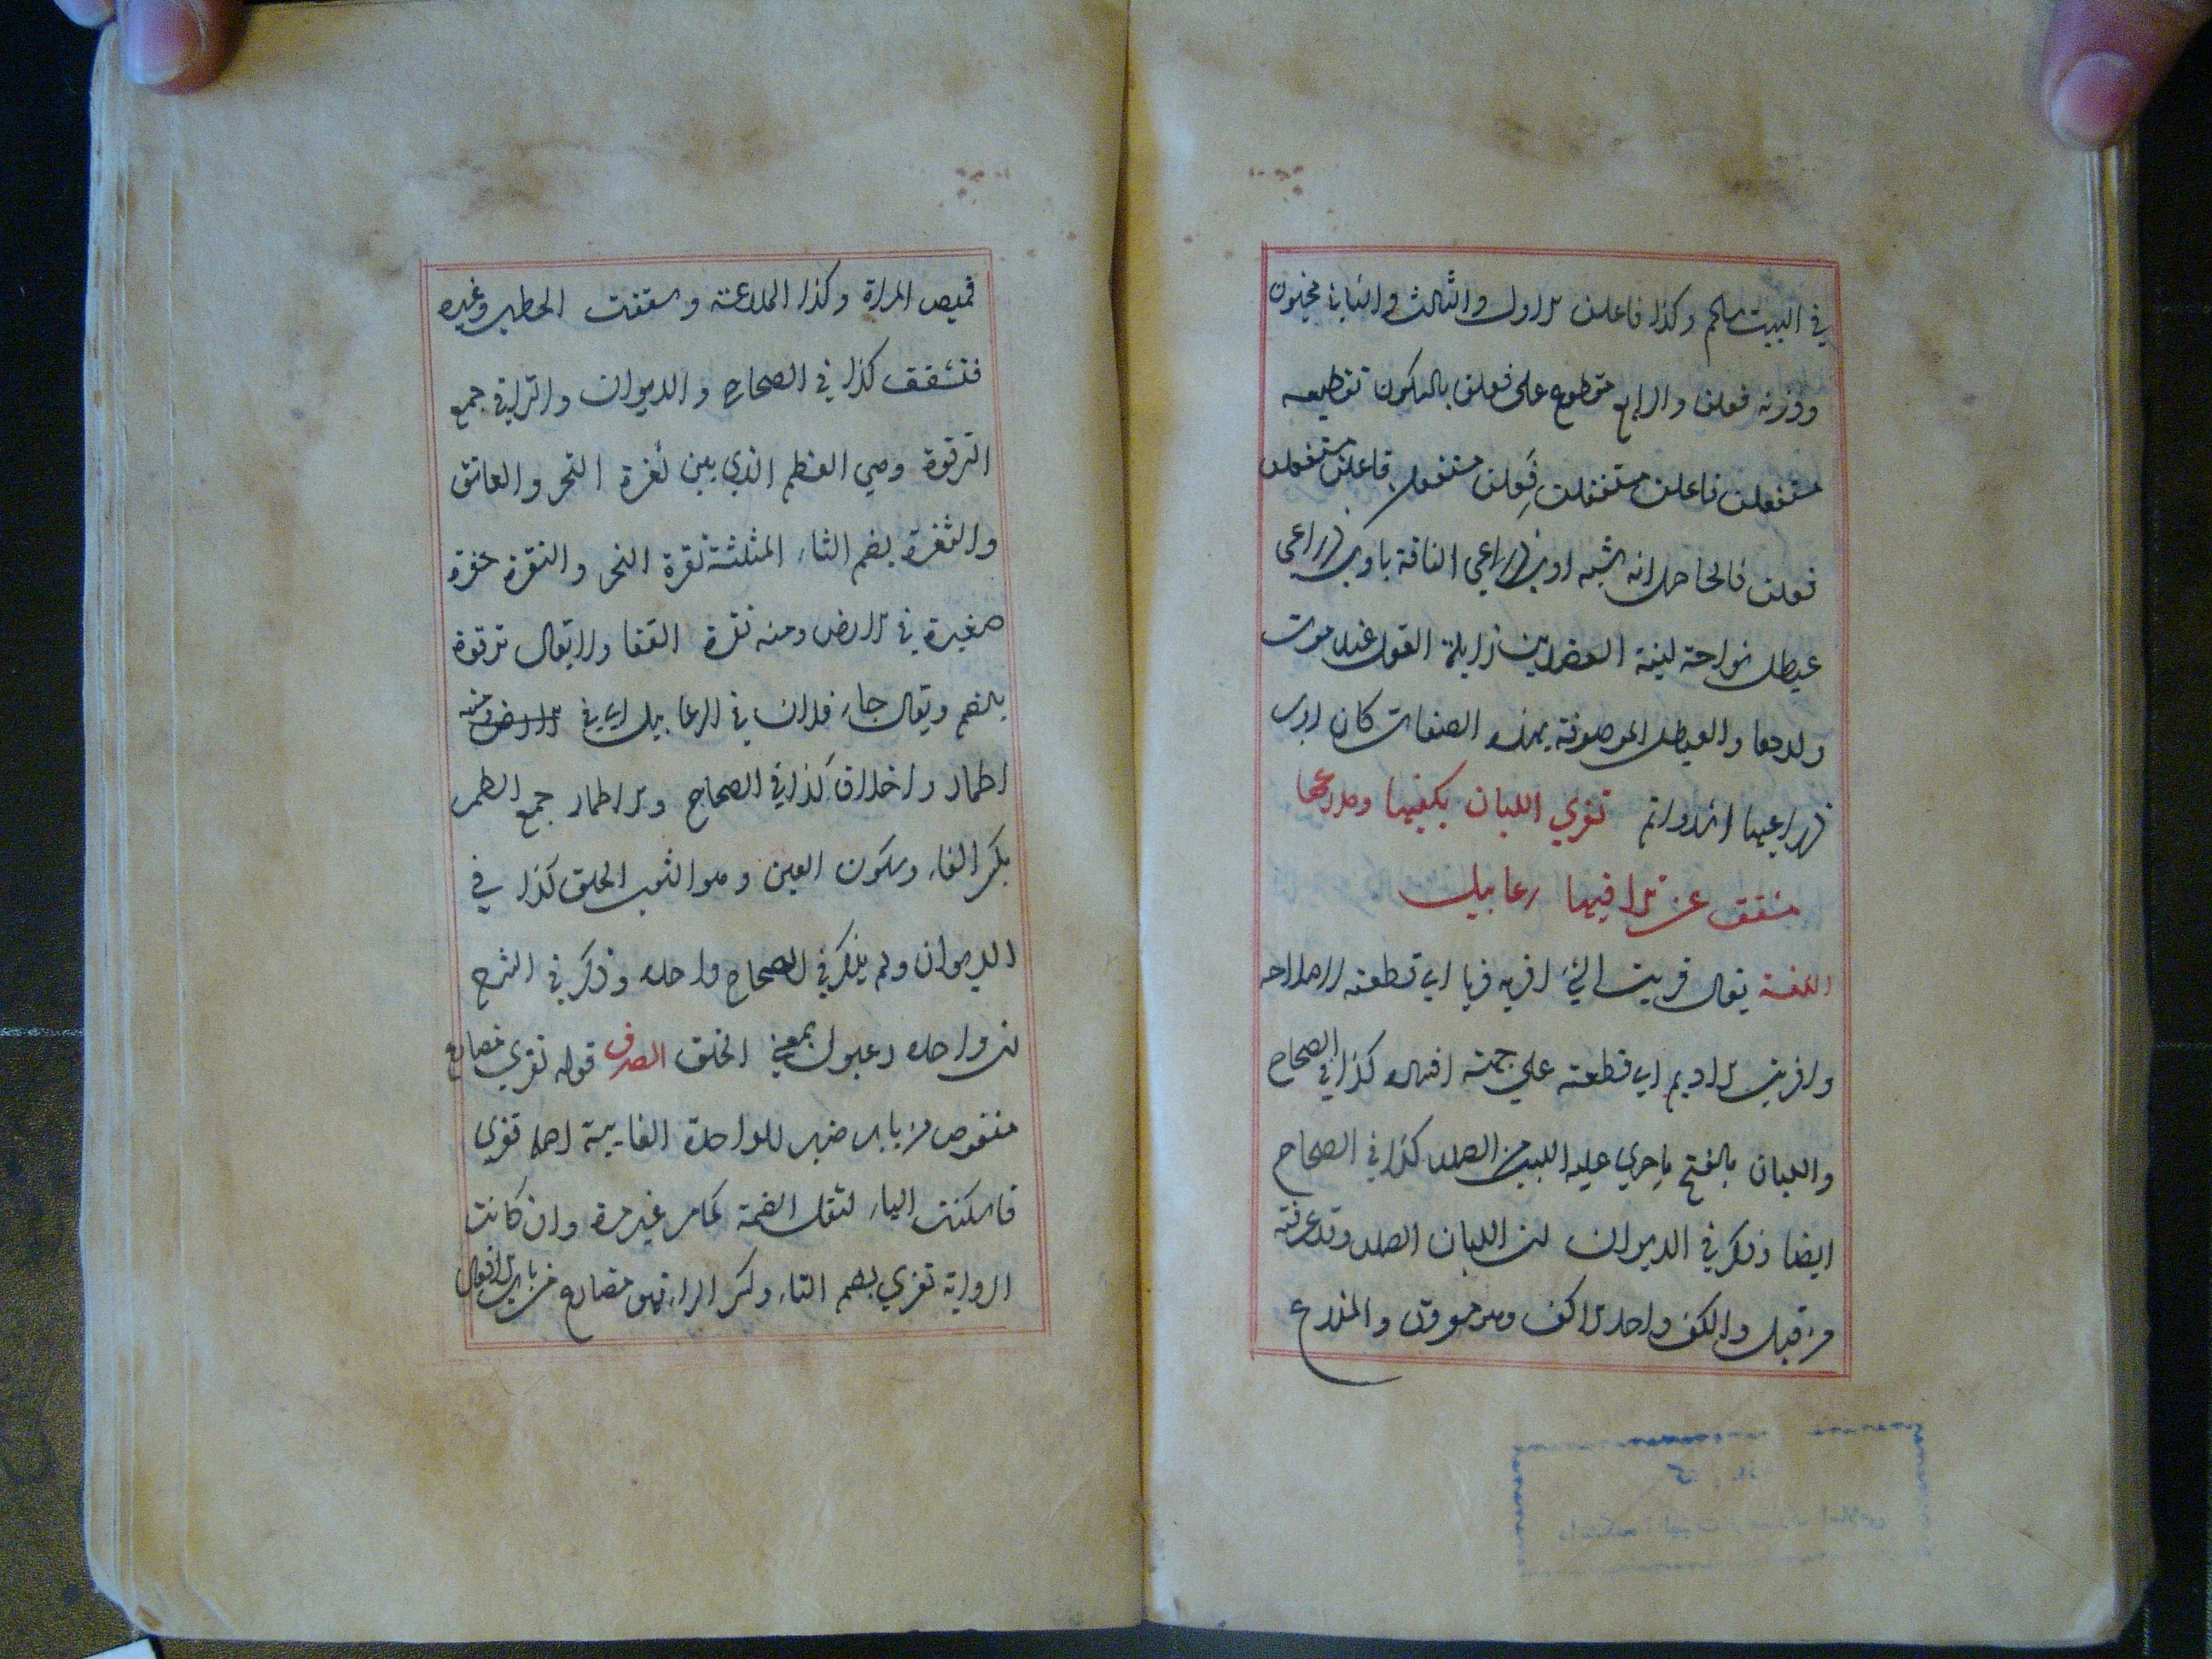 في البيت سالم وكذا فاعلن الاول والثالث والثاني مخبون
ووزنه فعلن والرابع مقطوع على فعلن بالسكون تقطيعه
مستفعلن فاعلن مستفعلن فَعِلن مستفعلن فاعلن مستفعلن
فعلن فالحاصل انه شبه اوب ذراعي الناقة باوب ذراعي
عيطل نواحة لينة العضدين زايلة العقول عند موت
ولدها والعيطل الموصوفة بهذه الصفات كان اوب
ذراعيها اشد واتم تفري اللبان بكفيها ومدرعها
مشقق عن تراقيها رعابيل
اللغة يقال فريت الشئ افريه فريا اي قطعته لاصلاحه
وافريت الاديم اي قطعته على جهة افساد كذا في الصحاح
واللبان بالفتح ما جري عليه اللبب من الصدر كذا في الصحاح
ايضا وذكر في الديوان ان اللبان الصدر وقد عرفته
من قبل والكف واحد الاكف وهو معروف والمدرع
قميص المراة وكذا المدرعة وشققت الحطب وغيره
فتشقق كذا في الصحاح والديوان والتراقي جمع
الترقوة وهي العظم الذي بين ثغرة النحر والعاتق
والثغرة بضم الثاء المثلثة نقرة النحر والنقرة حفرة
صغيرة في الارض ومنه نقرة القفا ولا يقال ترقوة
بالضم ويقال جاء فلان في الرعابيل اي في الارض ومنه
اطمار واخلاق كذا في الصحاح والاطمار جمع الطمر
بكسر الفاء وسكون العين وهو الثوب الخلق كذا في
الديوان ولم يذكر في الصحاح واحده وذكر في الشرح
ان واحده رعبول بمعنى الخلق الصرف قوله تفري مضارع
منقوص من باب ضرب للواحدة الغايبة اصله تفري
فاسكنت الياء لثقل الضمة كما مر غير مرة وان كانت
الرواية تفري بضم التاء وكسر الراء فهو مضارع من باب الافعال